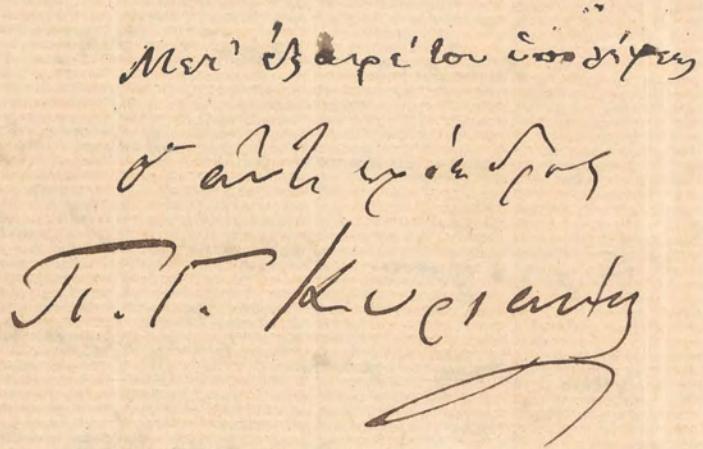 Μετ' ἐξαιρέτου ὑπολήψεως
ὁ ἀντιπρόεδρος
Π. Γ. Κυριακός